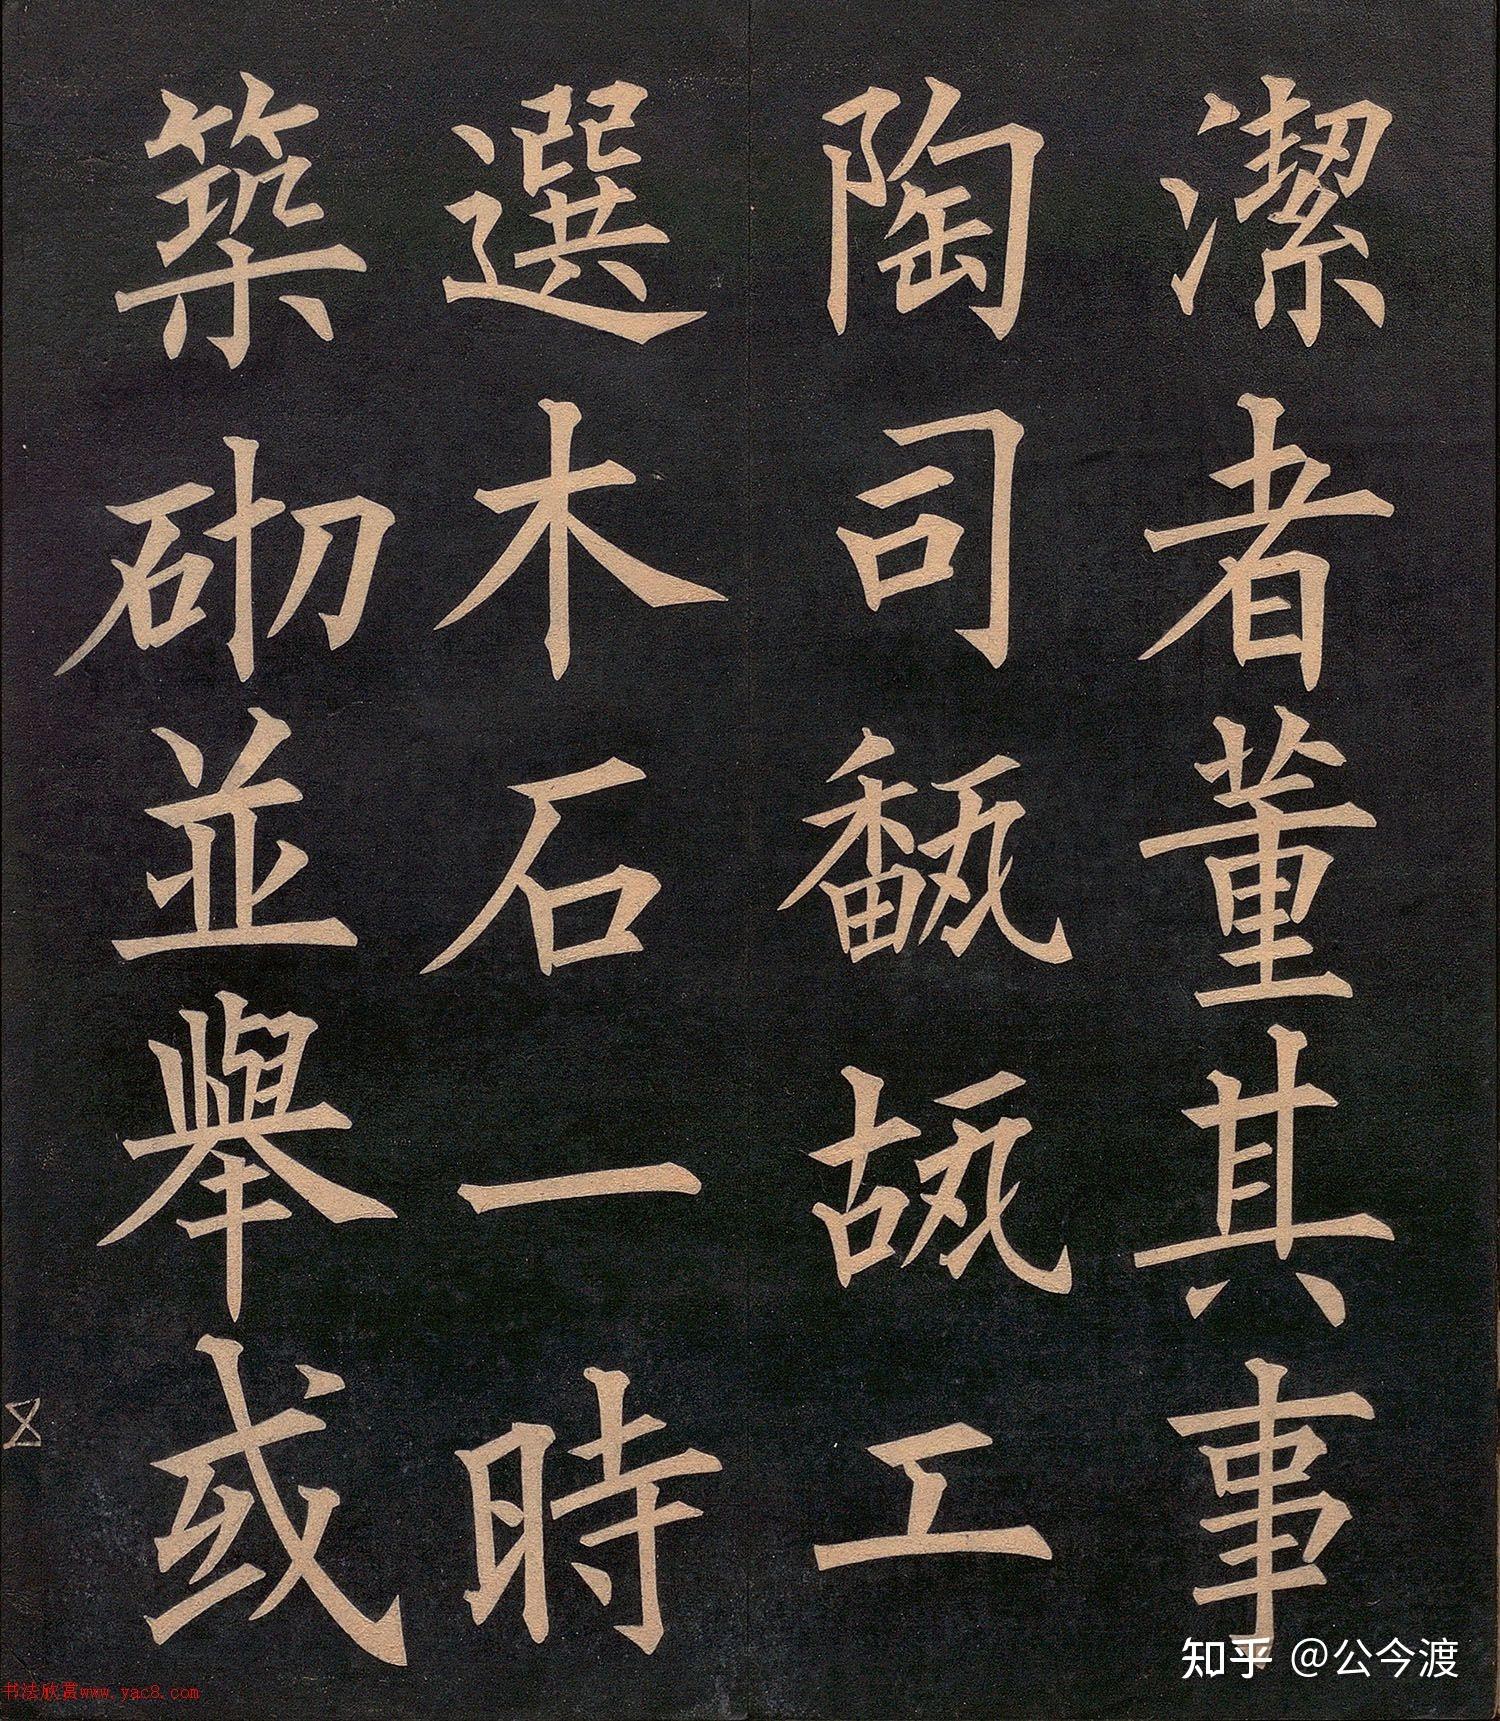 潔者董其事
陶司㼃㼋工
選木石一時
築砌並舉或
知乎 @公今渡
书法欣赏www.yac8.com